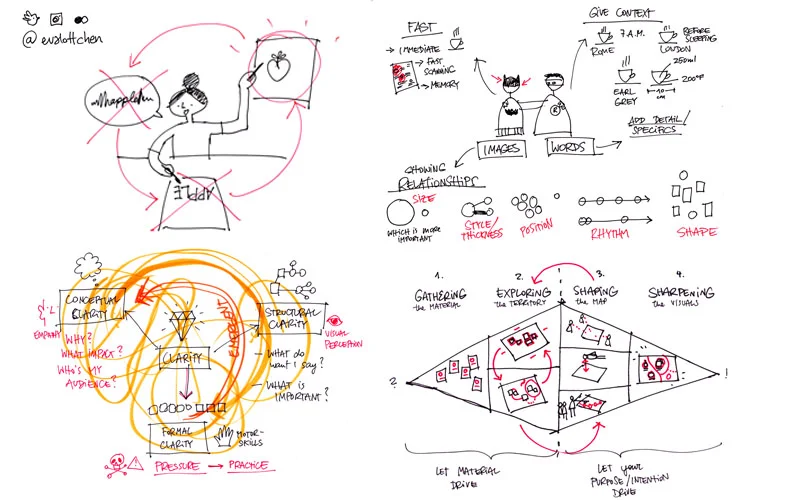 @evalottchen
apple
APPLE
FAST
→ IMMEDIATE
→ FAST
SCANNING
→ MEMORY
GIVE CONTEXT
7 A.M.
ROME
BEFORE
SLEEPING
LONDON
250ml
EARL
GREY
200°F
10
cm
ADD DETAIL/
SPECIFICS
R
IMAGES
WORDS
SHOWING
RELATIONSHIPS
SIZE
WHICH IS MORE
IMPORTANT
STYLE/
THICKNESS
POSITION
RHYTHM
SHAPE
CONCEPTUAL
CLARITY
EMPATHY
WHY?
WHAT IMPACT?
WHO'S MY
AUDIENCE?
CLARITY
STRUCTURAL
CLARITY
VISUAL
PERCEPTION
- WHAT DO
I want SAY?
- WHAT IS
IMPORTANT?
FORMAL
CLARITY
MOTOR-
SKILLS
PRESSURE → PRACTICE
1.
GATHERING
the MATERIAL
2.
EXPLORING
the TERRITORY
3.
SHAPING
the MAP
4.
SHARPENING
the VISUALS
?
!
LET MATERIAL
DRIVE
LET your
PURPOSE/INTENTION
DRIVE